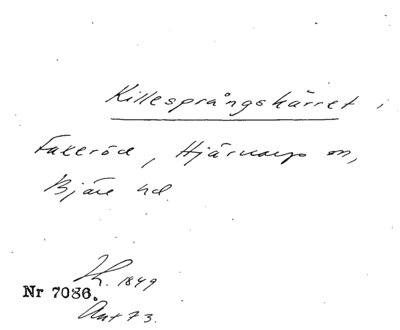 Killesprångskärret i
Faleröd, Hjärnarps sn,
Bjäre hd.
Lh. 1849
Nr 7086.
Ant 73.